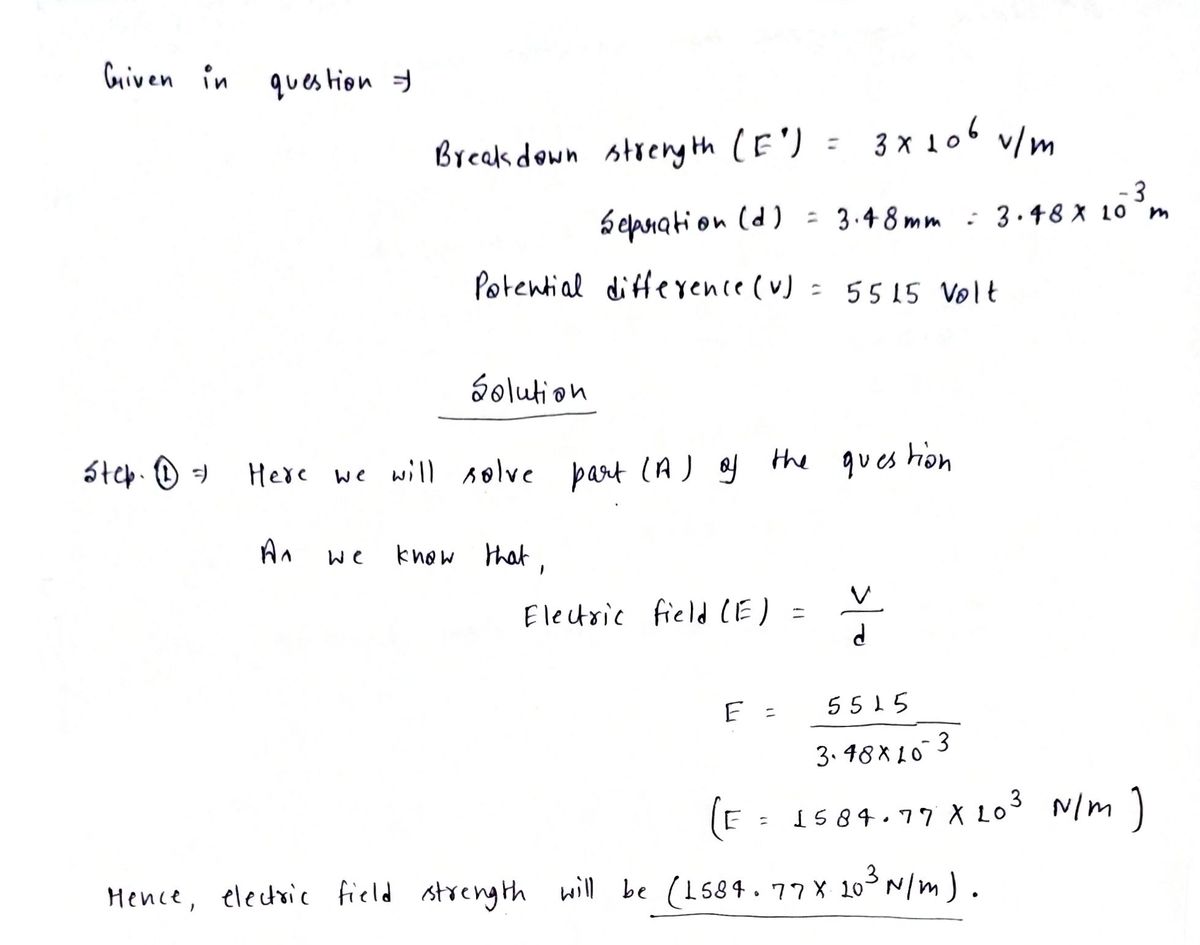 Given in question ⇒
Breakdown strength (E') = 3 × 10⁶ v/m
Separation (d) = 3.48 mm = 3.48 × 10⁻³ m
Potential difference (v) = 5515 Volt
Solution
Step. ① ⇒ Here we will solve part (A) of the question
As we know that,
Electric field (E) = V/d
E = 5515 / 3.48 × 10⁻³
(E = 1584.77 × 10³ N/m)
Hence, electric field strength will be (1584.77 × 10³ N/m).